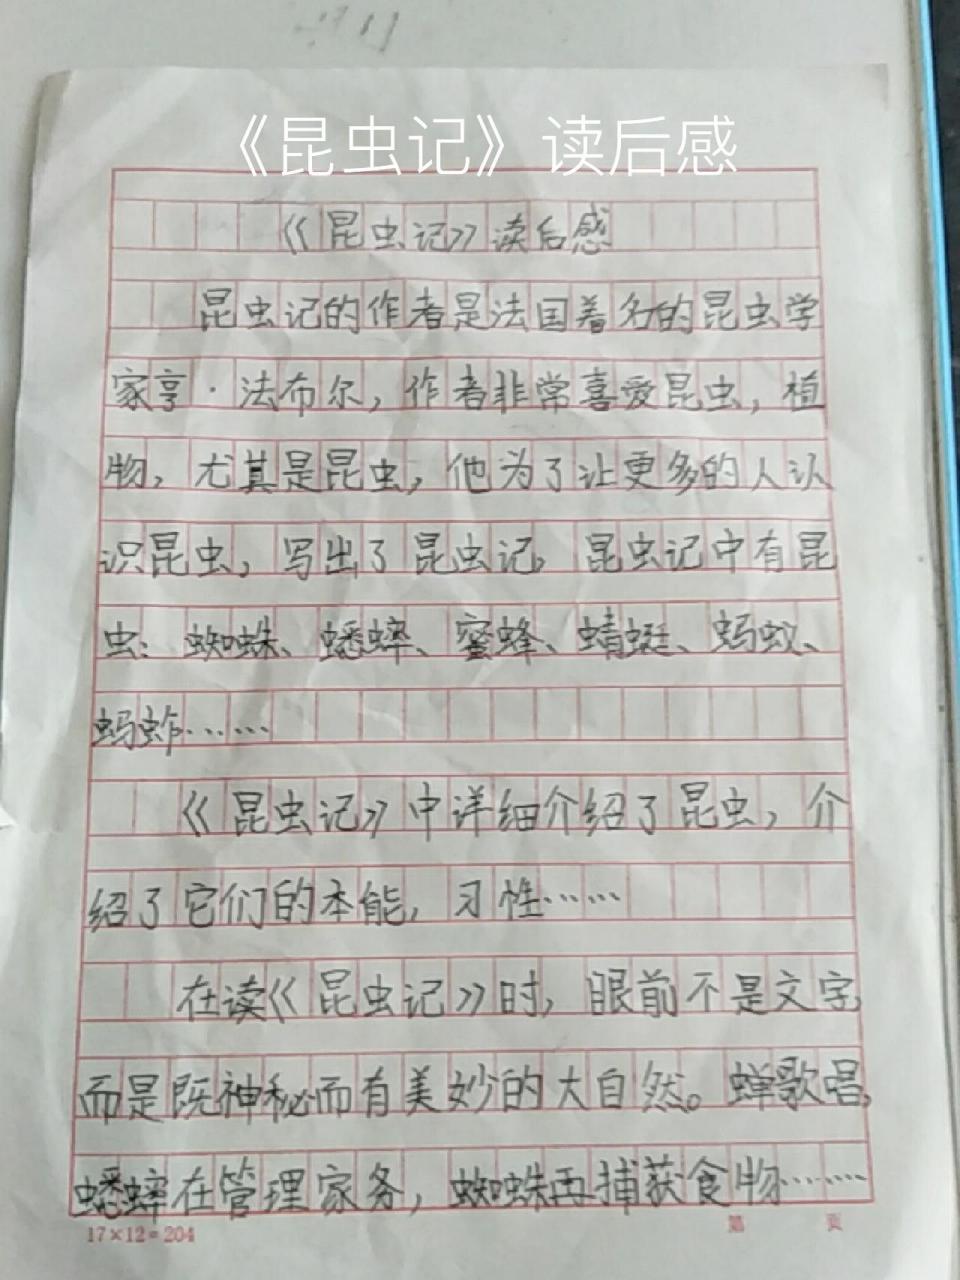 《昆虫记》读后感
《昆虫记》读后感
昆虫记的作者是法国着名的昆虫学
家亨·法布尔，作者非常喜爱昆虫，植
物，尤其是昆虫，他为了让更多的人认
识昆虫，写出了昆虫记，昆虫记中有昆
虫：蜘蛛、蟋蟀、蜜蜂、蜻蜓、蚂蚁、
蚂蚱……
《昆虫记》中详细介绍了昆虫，介
绍了它们的本能，习性……
在读《昆虫记》时，眼前不是文字，
而是既神秘而有美妙的大自然。蝉歌唱，
蟋蟀在管理家务，蜘蛛再捕获食物……
17×12=204
第 页